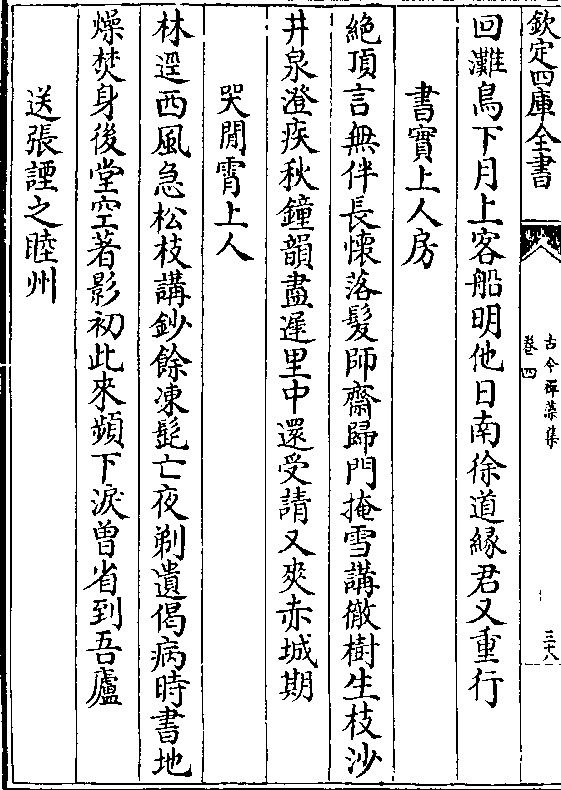 欽定四庫全書
古今禪藻集
卷四
三十八
回灘鳥下月上客船明他日南徐道緣君又重行
書寶上人房
絶頂言無伴長懐落髮師齋歸門掩雪講徹樹生枝沙
井泉澄疾秋鐘韻盡遲里中還受請又爽赤城期
哭閒霄上人
林逕西風急松枝講鈔餘凍髭亡夜剃遺偈病時書地
燥焚身後堂空著影初此來頻下淚曽省到吾廬
送張諲之睦州